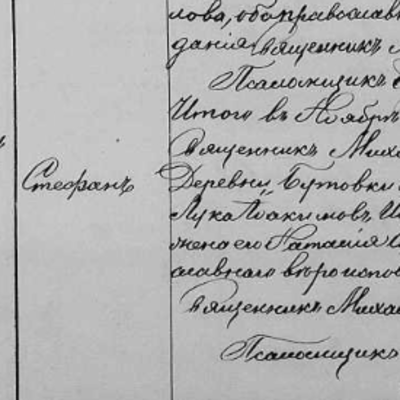 лова, оба православ
данія Священникъ М
Псаломщикъ
Итого въ Ноябрѣ
Священникъ Миха
Стефанъ
Деревни Бутовки
Лука Іоакимовъ И
жена его Наталія
славнаго вѣроиспов
Священникъ Миха
Псаломщикъ